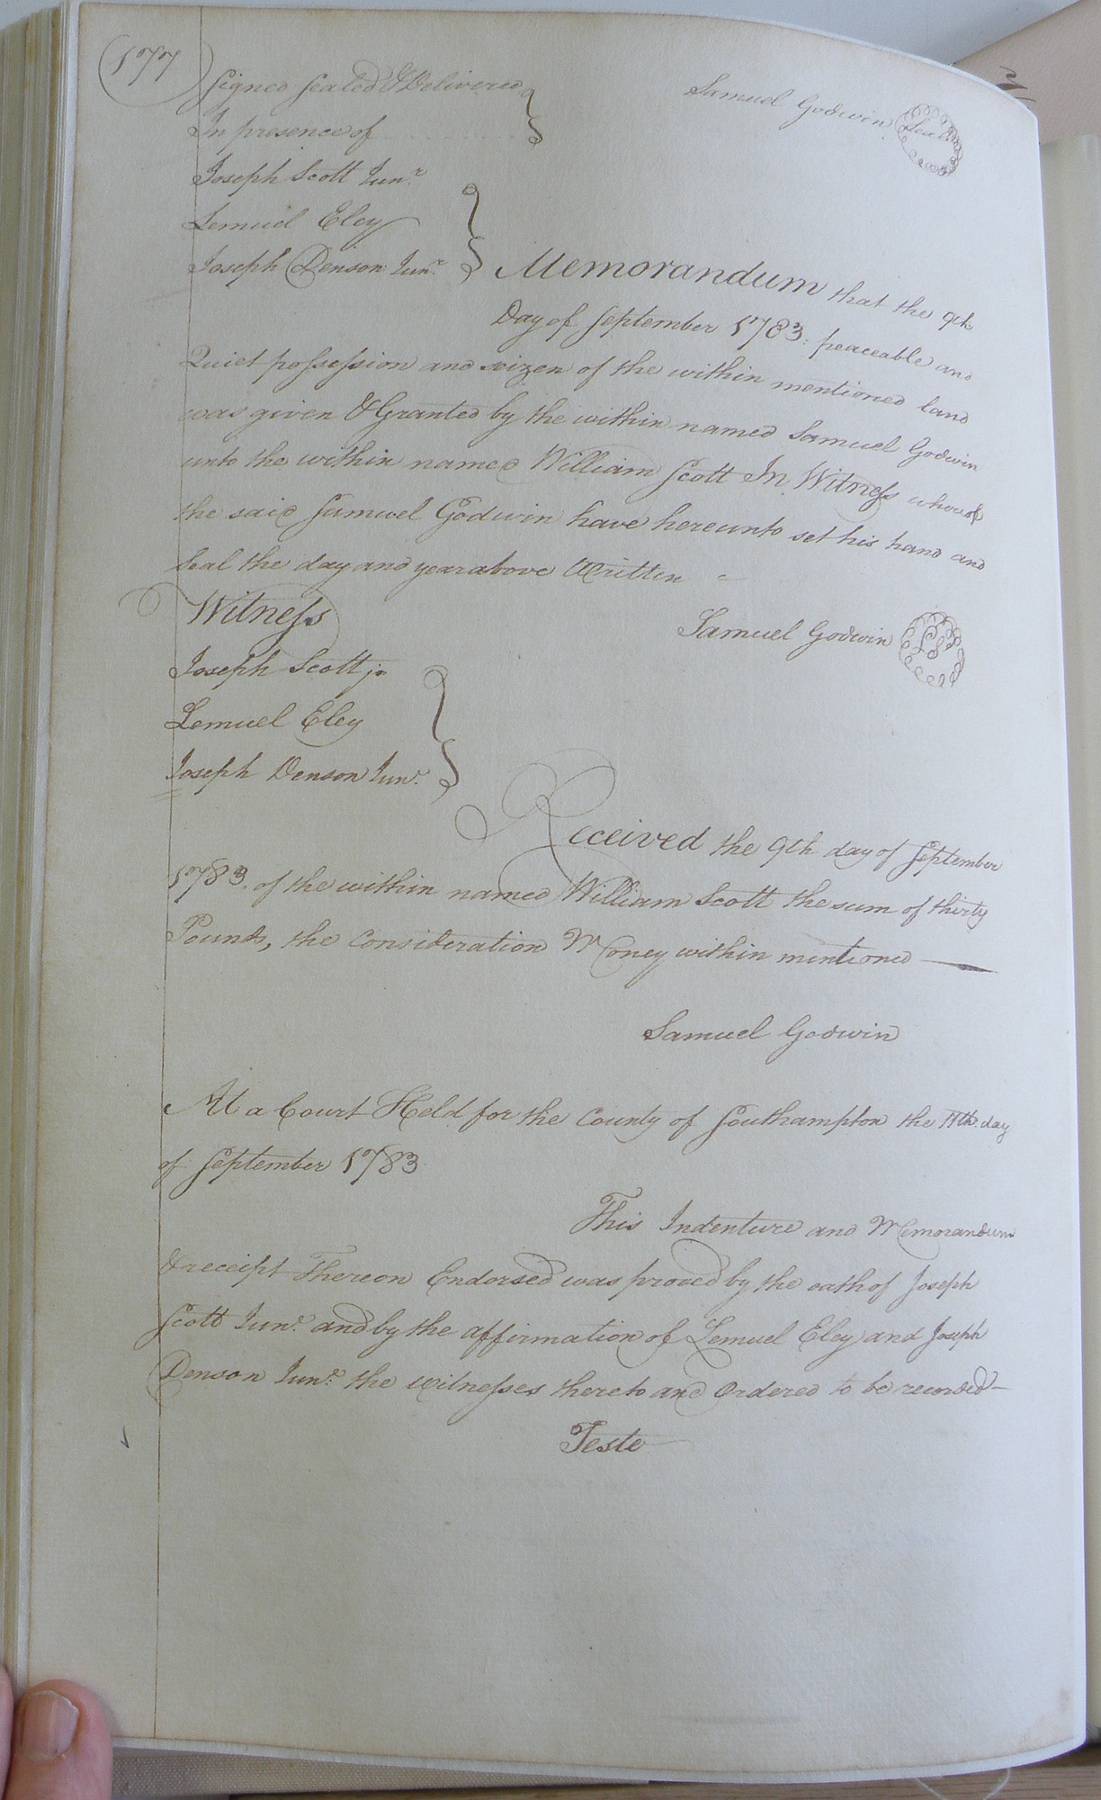 (177)
Signed Sealed & Delivered
In presence of
Samuel Godwin Seal
Joseph Scott Junr.
Lemuel Eley
Joseph Denson Junr.
Memorandum that the 9th
Day of September 1783: peaceable and
Quiet possession and seizen of the within mentioned land
was given & Granted by the within named Samuel Godwin
unto the within named William Scott In Witness whereof
the said Samuel Godwin have hereunto set his hand and
Seal the day and year above Written
Samuel Godwin LS
Witness
Joseph Scott jr
Lemuel Eley
Joseph Denson Junr.
Received the 9th day of September
1783. of the within named William Scott the sum of thirty
Pounds, the Consideration Money within mentioned
Samuel Godwin
At a Court Held for the County of Southampton the 11th day
of September 1783
This Indenture and Memorandum
& receipt Thereon Endorsed was proved by the oath of Joseph
Scott Junr. and by the affirmation of Lemuel Eley and Joseph
Denson Junr. the witnesses thereto and Ordered to be recorded
Teste